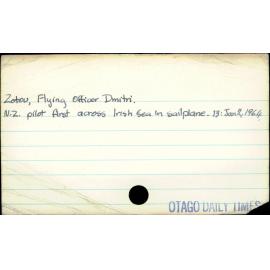 Zotov, Flying Officer Dmitri.
N.Z. pilot first across Irish Sea in sailplane. 13: Jan 2, 1964
OTAGO DAILY TIMES